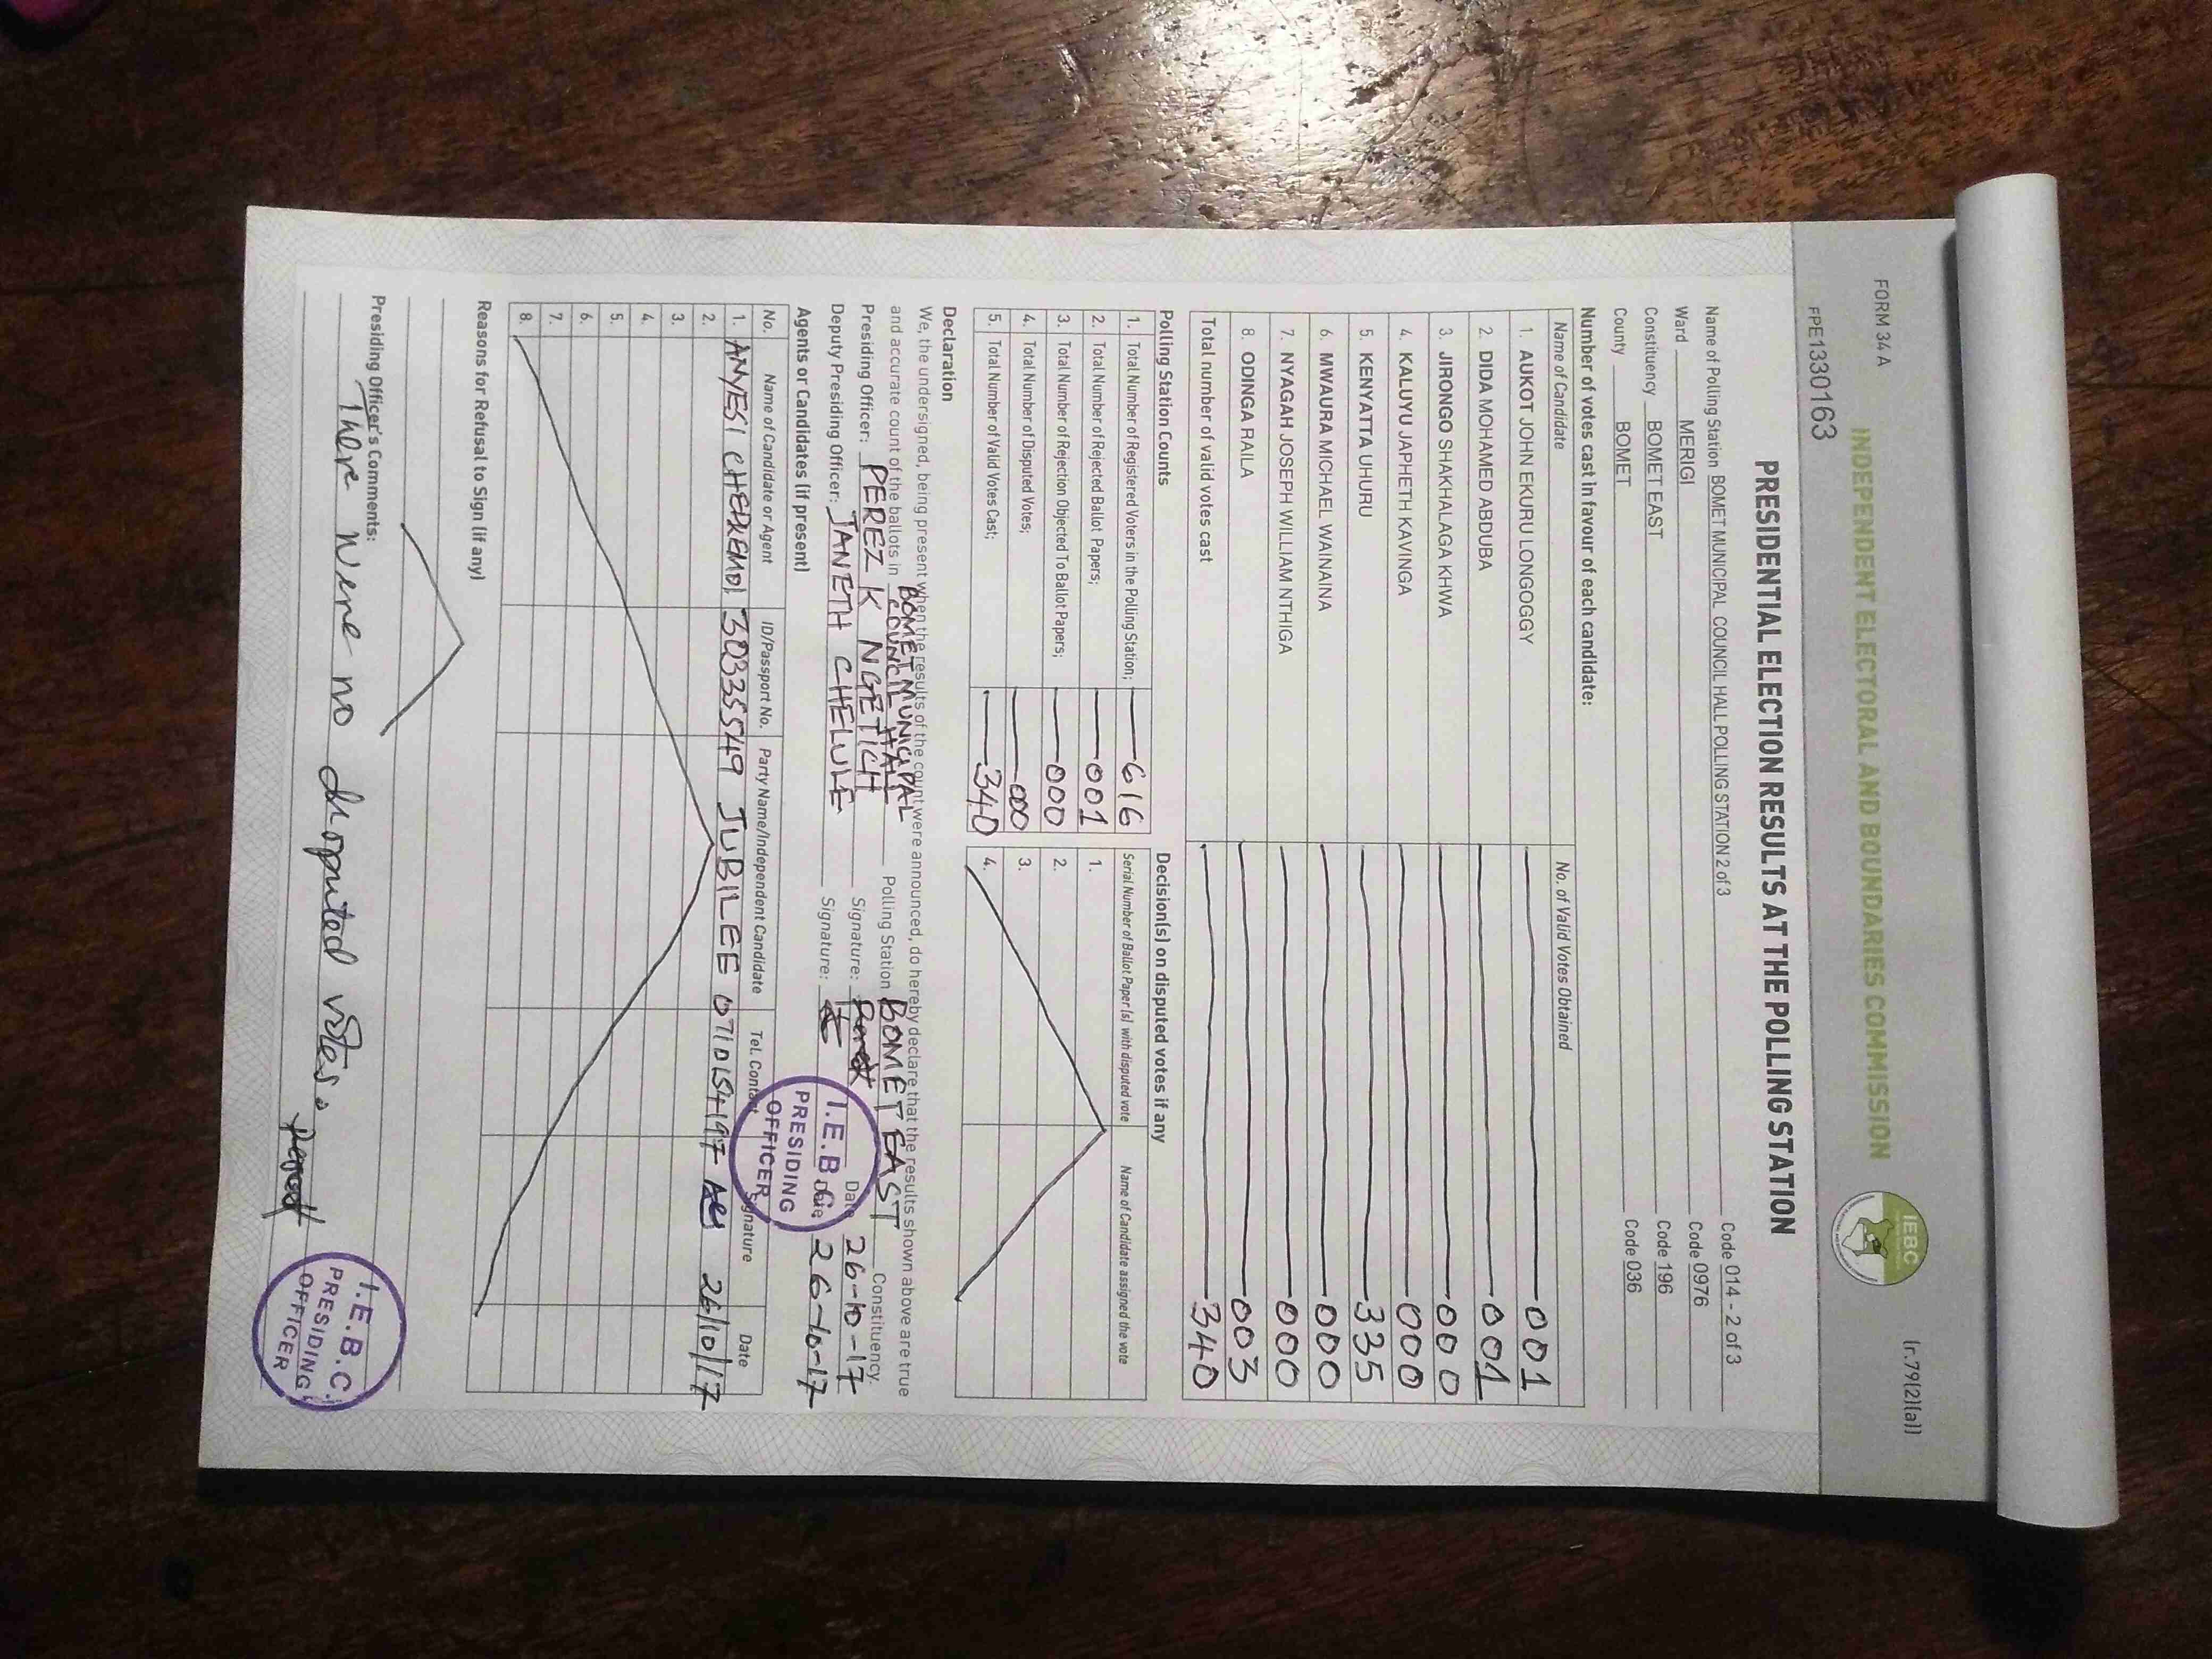 FORM 34 A
(r.79(2)(a))
INDEPENDENT ELECTORAL AND BOUNDARIES COMMISSION
IEBC
FPE1330163
PRESIDENTIAL ELECTION RESULTS AT THE POLLING STATION
Name of Polling Station BOMET MUNICIPAL COUNCIL HALL POLLING STATION 2 of 3 Code 014 - 2 of 3
Ward MERIGI Code 0976
Constituency BOMET EAST Code 196
County BOMET Code 036
Number of votes cast in favour of each candidate:
Name of Candidate No. of Valid Votes Obtained
1. AUKOT JOHN EKURU LONGOGGY 001
2. DIDA MOHAMED ABDUBA 001
3. JIRONGO SHAKHALAGA KHWA 000
4. KALUYU JAPHETH KAVINGA 000
5. KENYATTA UHURU 335
6. MWAURA MICHAEL WAINAINA 000
7. NYAGAH JOSEPH WILLIAM NTHIGA 000
8. ODINGA RAILA 003
Total number of valid votes cast 340
Polling Station Counts
1. Total Number of Registered Voters in the Polling Station; 616
2. Total Number of Rejected Ballot Papers; 001
3. Total Number of Rejection Objected To Ballot Papers; 000
4. Total Number of Disputed Votes; 000
5. Total Number of Valid Votes Cast; 340
Decision(s) on disputed votes if any
Serial Number of Ballot Paper (s) with disputed vote Name of Candidate assigned the vote
1.
2.
3.
4.
Declaration
We, the undersigned, being present when the results of the count were announced, do hereby declare that the results shown above are true
and accurate count of the ballots in BOMET MUNICIPAL COUNCIL HALL Polling Station BOMET EAST Constituency.
Presiding Officer: PEREZ K NGETICH Signature: Date 26-10-17
Deputy Presiding Officer: JANETH CHELULE Signature: Date 26-10-17
I.E.B.C.
PRESIDING
OFFICER
Agents or Candidates (if present)
No. Name of Candidate or Agent ID/Passport No. Party Name/Independent Candidate Tel. Contact Signature Date
1. ANYESI CHEPKEMOI 30335549 JUBILEE 0710154197 26/10/17
2.
3.
4.
5.
6.
7.
8.
Reasons for Refusal to Sign (if any)
Presiding Officer's Comments:
There were no disputed votes.
I.E.B.C.
PRESIDING
OFFICER